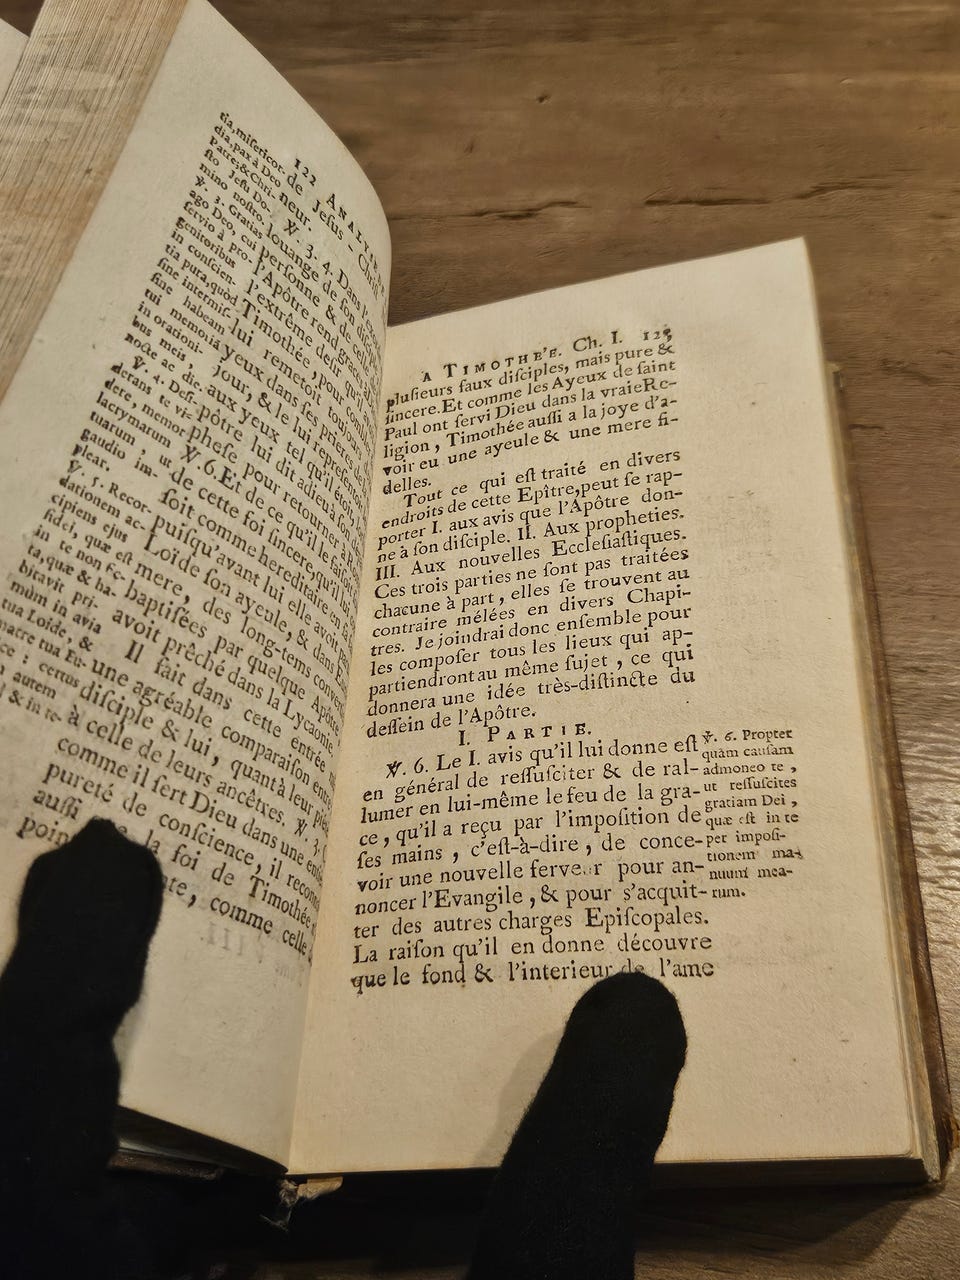 122 ANALYSE
de Jeſus-Chriſt
neur.
℣. 3. 4. Dans l'exor
louange de ſon diſcip
perſonne & de celle
l'Apôtre rend graces à
l'extrême deſir qu'il a
Timothée, pour combler
lui remetoit toujours
yeux dans ſes prieres de
jour, & le lui repreſentoit
aux yeux tel qu'il étoit, lo
pôtre lui dit adieu à ſon
pheſe pour retourner à
℣. 6. Et de ce qu'il le faiſoit
de cette foi ſincere, qu'il lui
ſoit comme hereditaire en ſa
puiſqu'avant lui elle avoit
Loïde ſon ayeule, & dans
mere, des long-tems conver
baptiſées par quelque Apôtre
avoit prêché dans la Lycaonie
Il fait dans cette entrée
une agréable comparaiſon entre
diſciple & lui, quant à leur
à celle de leurs ancêtres. ℣. 3.
comme il ſert Dieu dans une
pureté de conſcience, il
auſſi la foi de Timothée
comme celle
tia, miſericor-
dia, pax à Deo
Patre, & Chri-
ſto Jeſu Do-
mino noſtro.
℣. 3. Gratias
ago Deo, cui
ſervio à pro-
genitoribus
in conſcien-
tia pura, quòd
ſine intermiſ-
ſine habeam
tui memoriā
in orationi-
bus meis,
nocte ac die.
℣. 4. Deſi-
derans te vi-
dere, memor
lacrymarum
tuarum, ut
gaudio im-
plear.
℣. 5. Recor-
dationem ac-
cipiens ejus
fidei, quæ eſt
in te non fic-
ta, quæ & ha-
bitavit pri-
mùm in avia
tua Loide, &
matre tua Eu-
ce : certus
autem
& in te
A TIMOTHE'E. Ch. I. 123
pluſieurs faux diſciples, mais pure &
ſincere. Et comme les Ayeux de ſaint
Paul ont ſervi Dieu dans la vraie Re-
ligion, Timothée auſſi a la joye d'a-
voir eu une ayeule & une mere fi-
delles.
Tout ce qui eſt traité en divers
endroits de cette Epître, peut ſe rap-
porter I. aux avis que l'Apôtre don-
ne à ſon diſciple. II. Aux propheties.
III. Aux nouvelles Eccleſiaſtiques.
Ces trois parties ne ſont pas traitées
chacune à part, elles ſe trouvent au
contraire mélées en divers Chapi-
tres. Je joindrai donc enſemble pour
les compoſer tous les lieux qui ap-
partiendront au même ſujet, ce qui
donnera une idée très-diſtincte du
deſſein de l'Apôtre.
I. PARTIE.
℣. 6. Le I. avis qu'il lui donne eſt
en général de reſſuſciter & de ral-
lumer en lui-même le feu de la gra-
ce, qu'il a reçu par l'impoſition de
ſes mains, c'eſt-à-dire, de conce-
voir une nouvelle ferveur pour an-
noncer l'Evangile, & pour s'acquit-
ter des autres charges Epiſcopales.
La raiſon qu'il en donne découvre
que le fond & l'interieur de l'ame
℣. 6. Propter
quàm cauſam
admoneo te,
ut reſſuſcites
gratiam Dei,
quæ eſt in te
per impoſi-
tionem ma-
nuum mea-
rum.